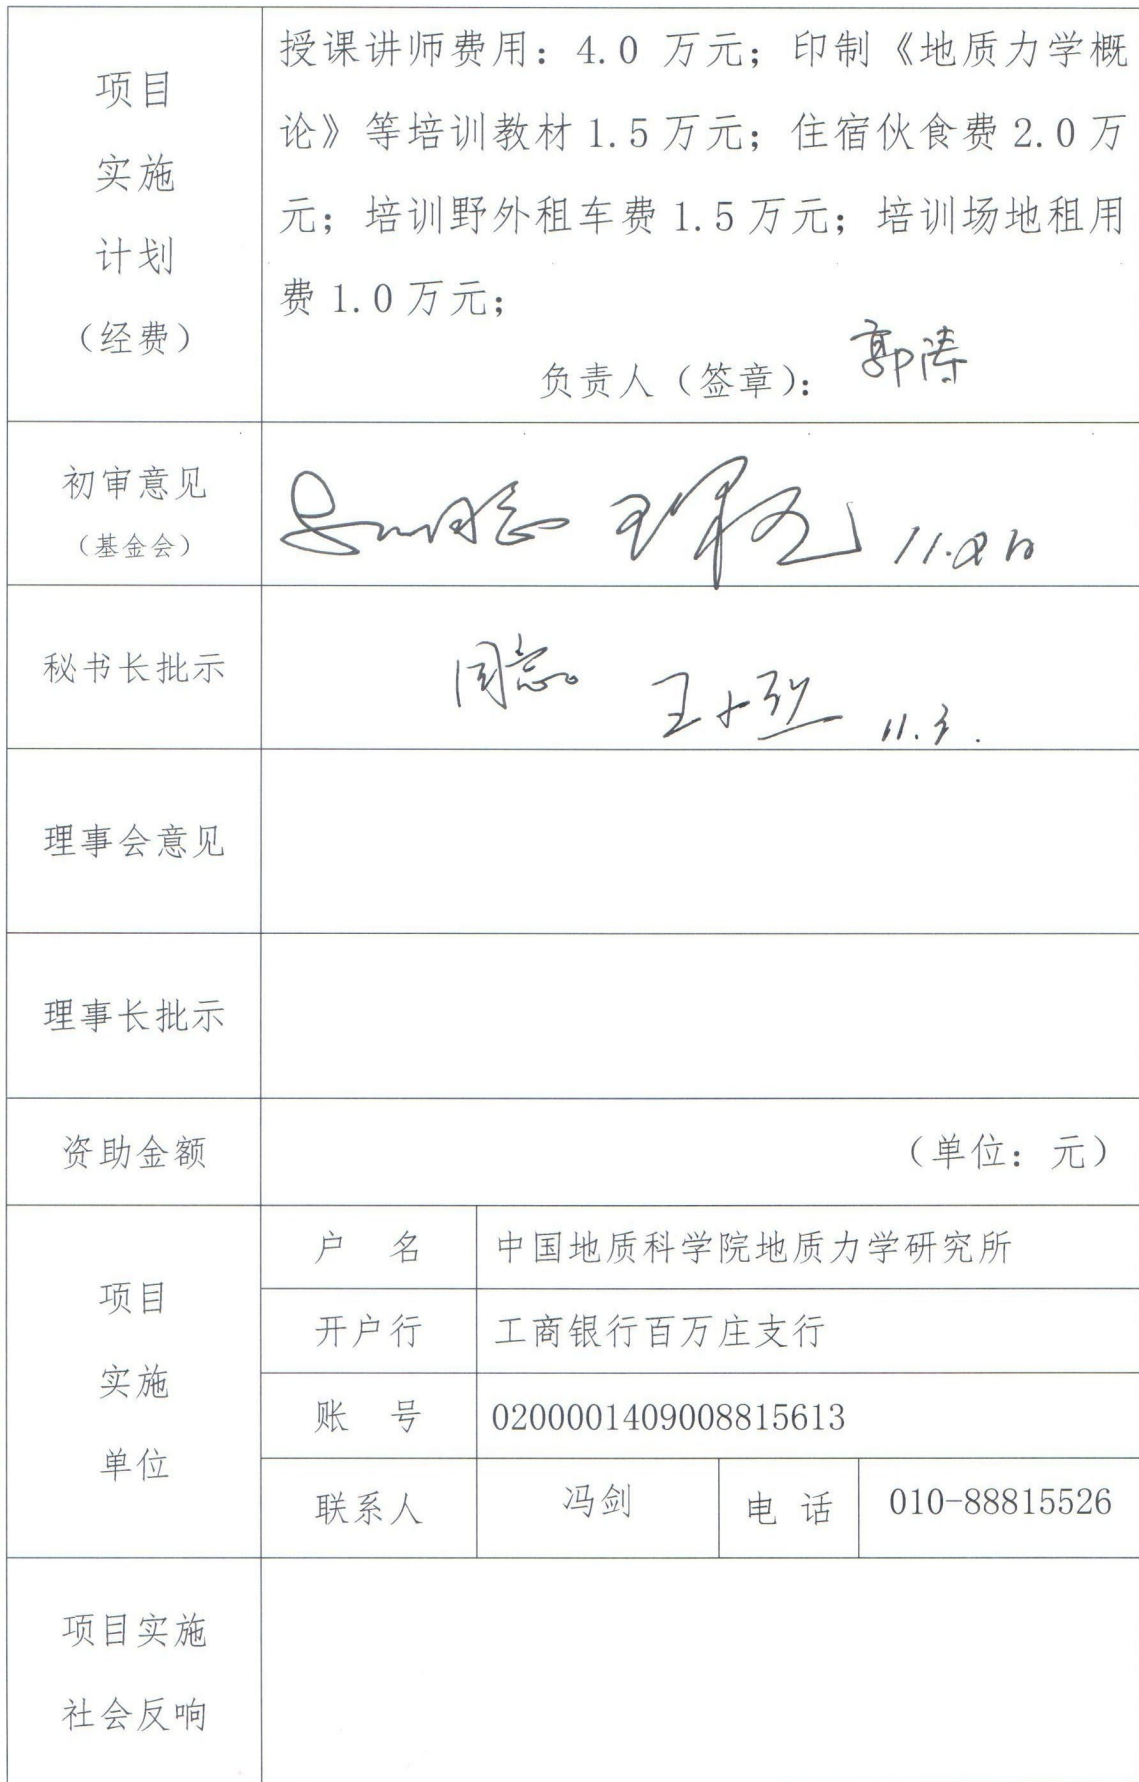 项目
实施
计划
（经费）
授课讲师费用：4.0 万元；印制《地质力学概
论》等培训教材 1.5 万元；住宿伙食费 2.0 万
元；培训野外租车费 1.5 万元；培训场地租用
费 1.0 万元；
负责人（签章）： 郭涛
初审意见
（基金会）
秘书长批示
同意。
11.3.
理事会意见
理事长批示
资助金额
（单位：元）
项目
实施
单位
户 名 中国地质科学院地质力学研究所
开户行 工商银行百万庄支行
账 号 0200001409008815613
联系人 冯剑 电 话 010-88815526
项目实施
社会反响